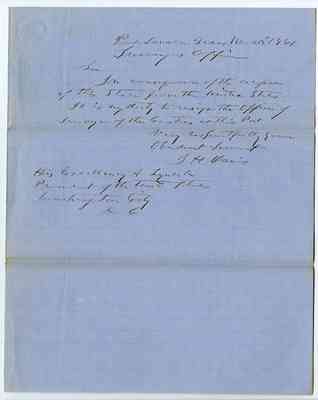 Port Lavaca Texas
Surveyors Office
Sir
In consequence of the
of this State from the United States
It is my duty to resign the Office of
Surveyor of the Customs at this Port
Very respectfully your
Obedient Servant
His Excellency A Lincoln
President of the United States
Washington City
D. C